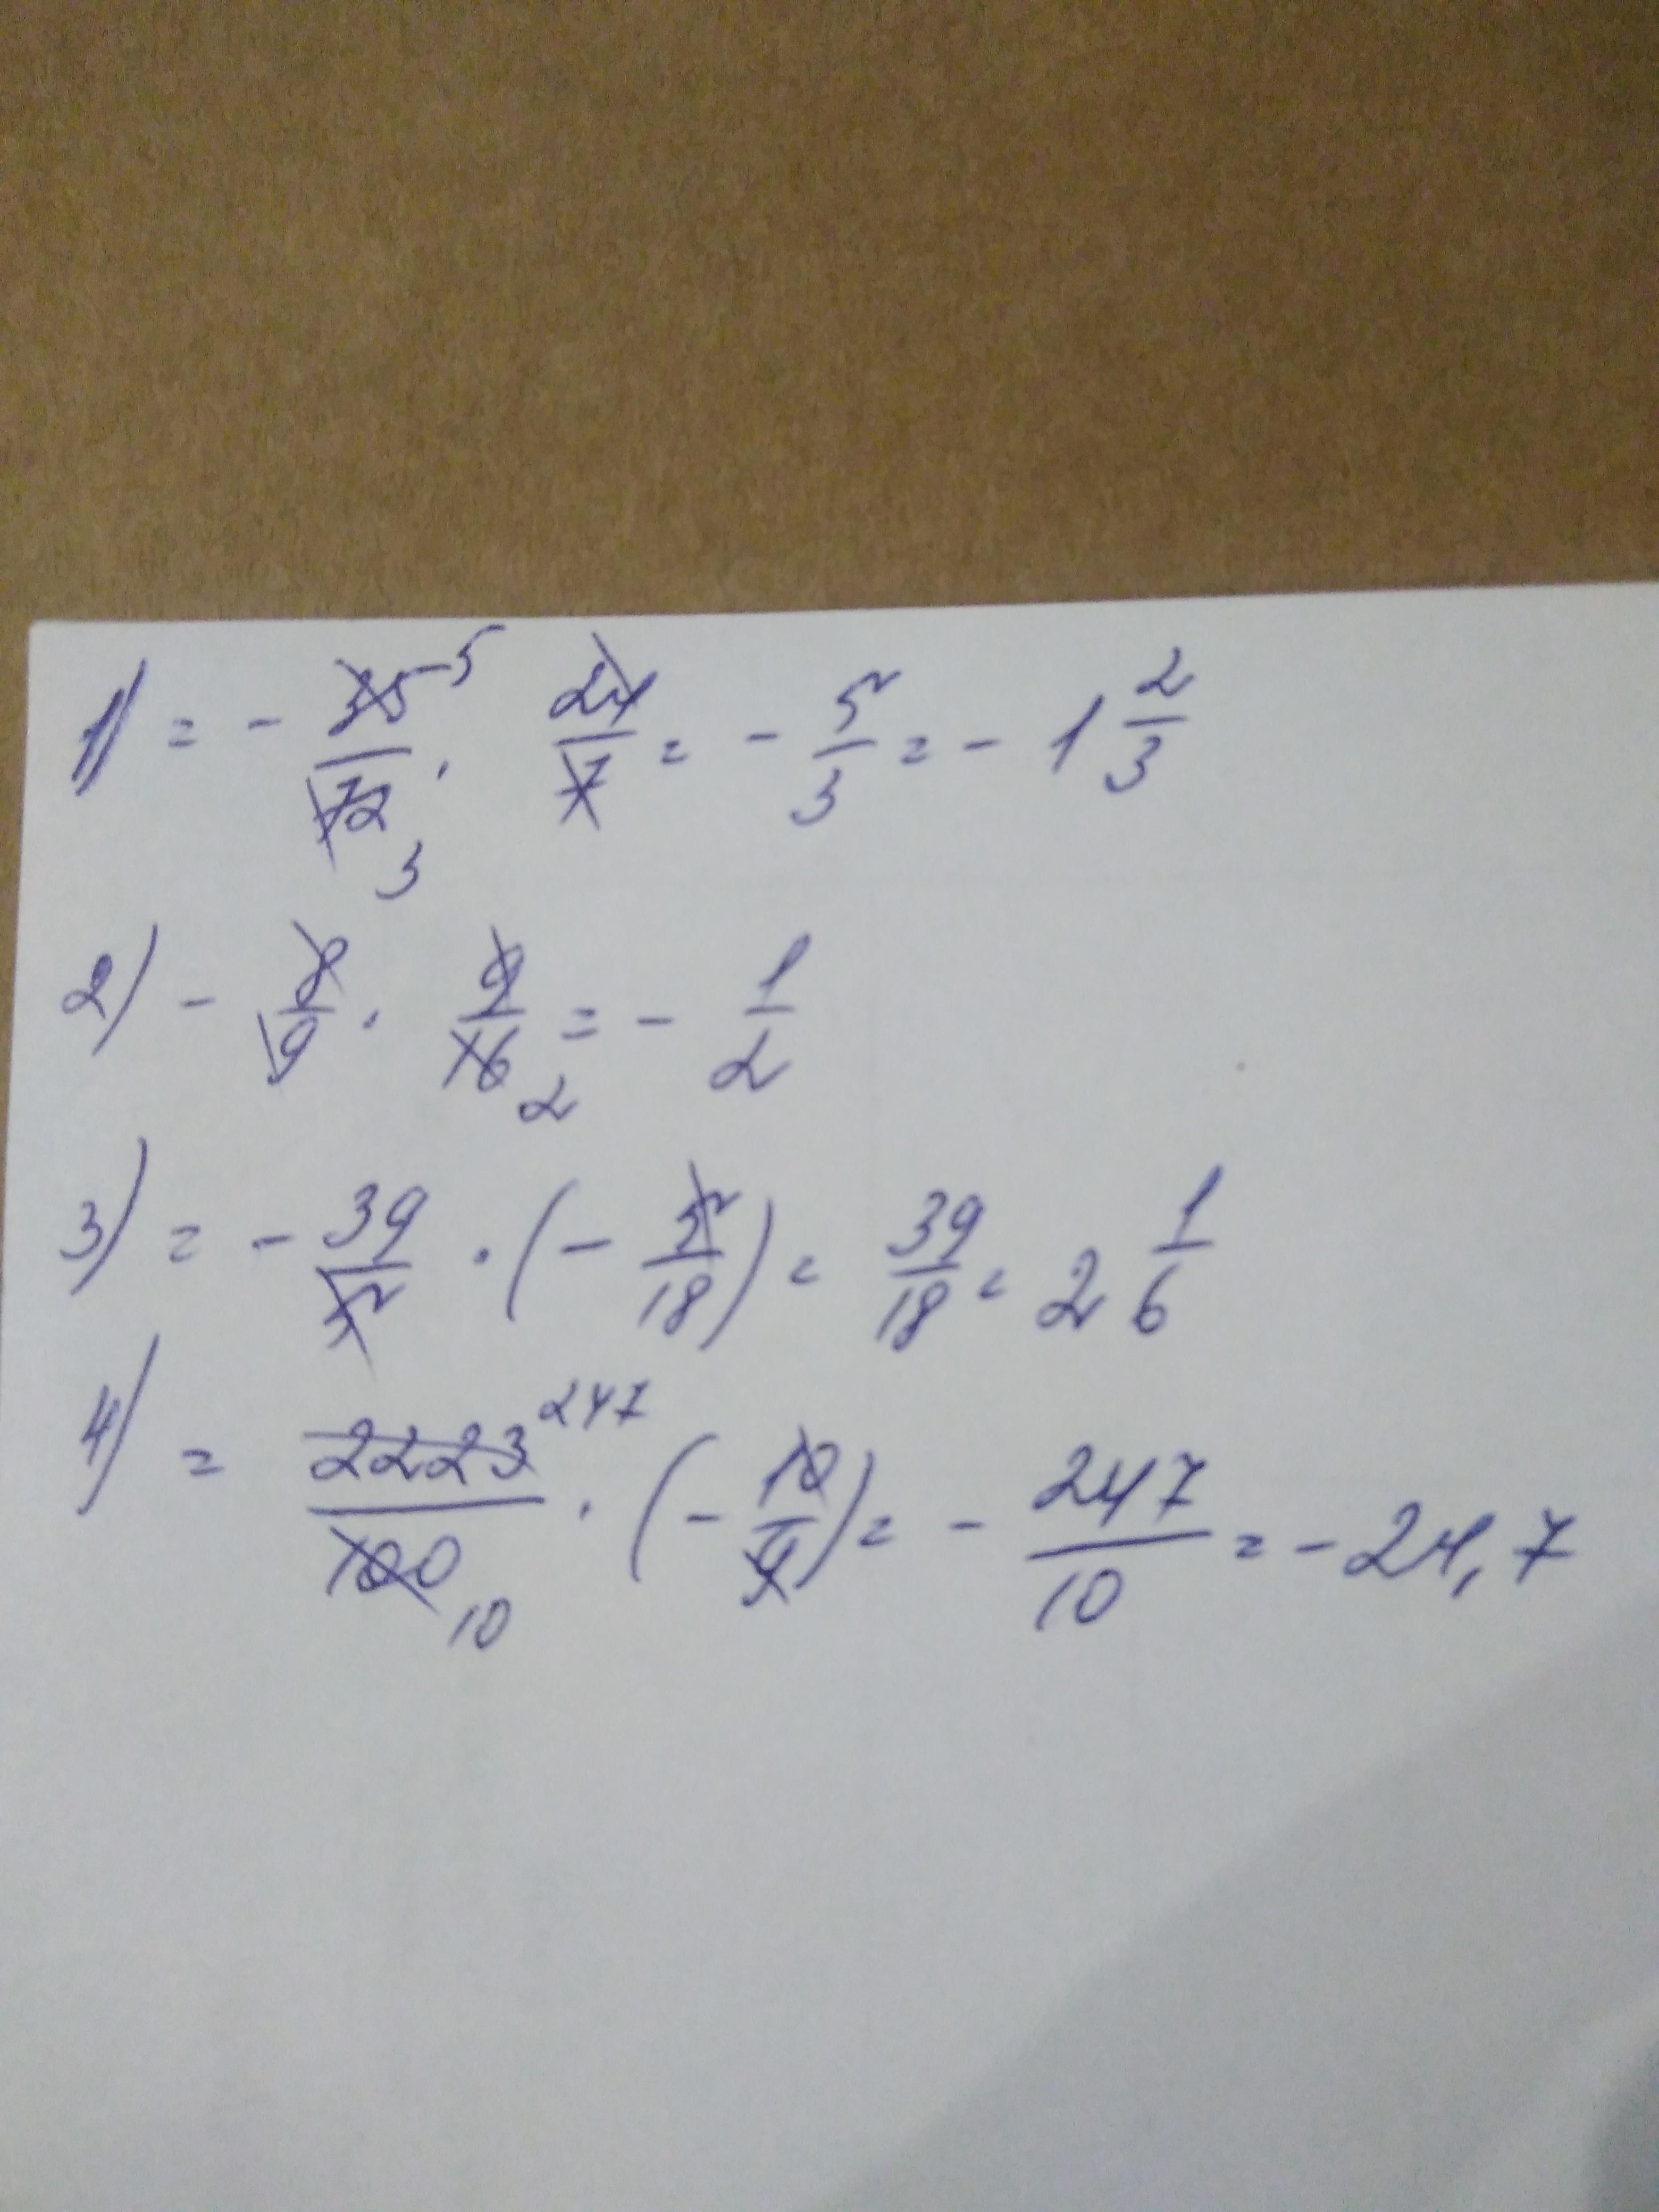 1) = - 35 5 / 72 3 · 24 / 7 = - 5/3 = - 1 2/3
2) - 8/9 · 9 / 16 2 = - 1/2
3) = - 39/5 · (- 5/18) = 39/18 = 2 1/6
4) = 2223 247 / 100 10 · (- 10/9) = - 247/10 = - 24,7